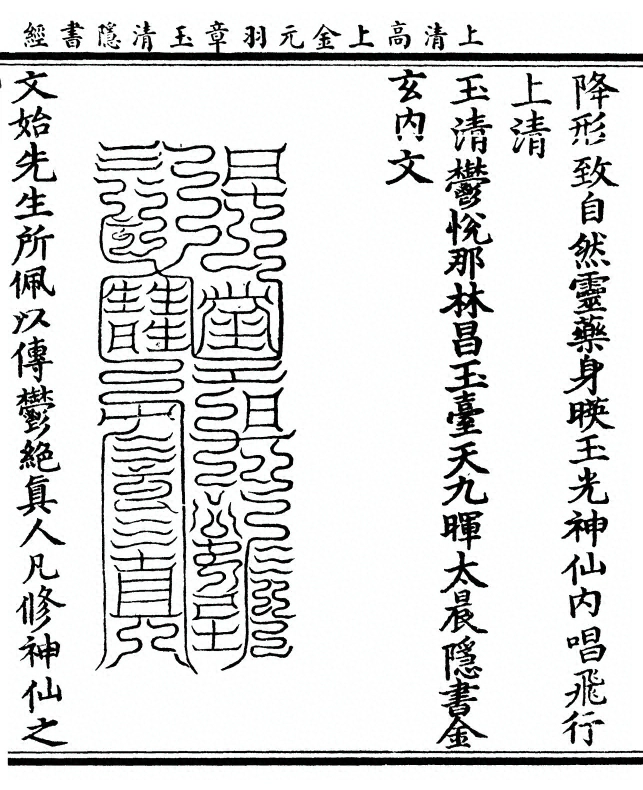 上清高上金元羽章玉清隱書經
降形致自然靈藥身暎玉光神仙內唱飛行
上清
玉清鬱悅那林昌玉臺天九暉太晨隱書金
玄內文
文始先生所佩以傳鬱絕真人凡修神仙之